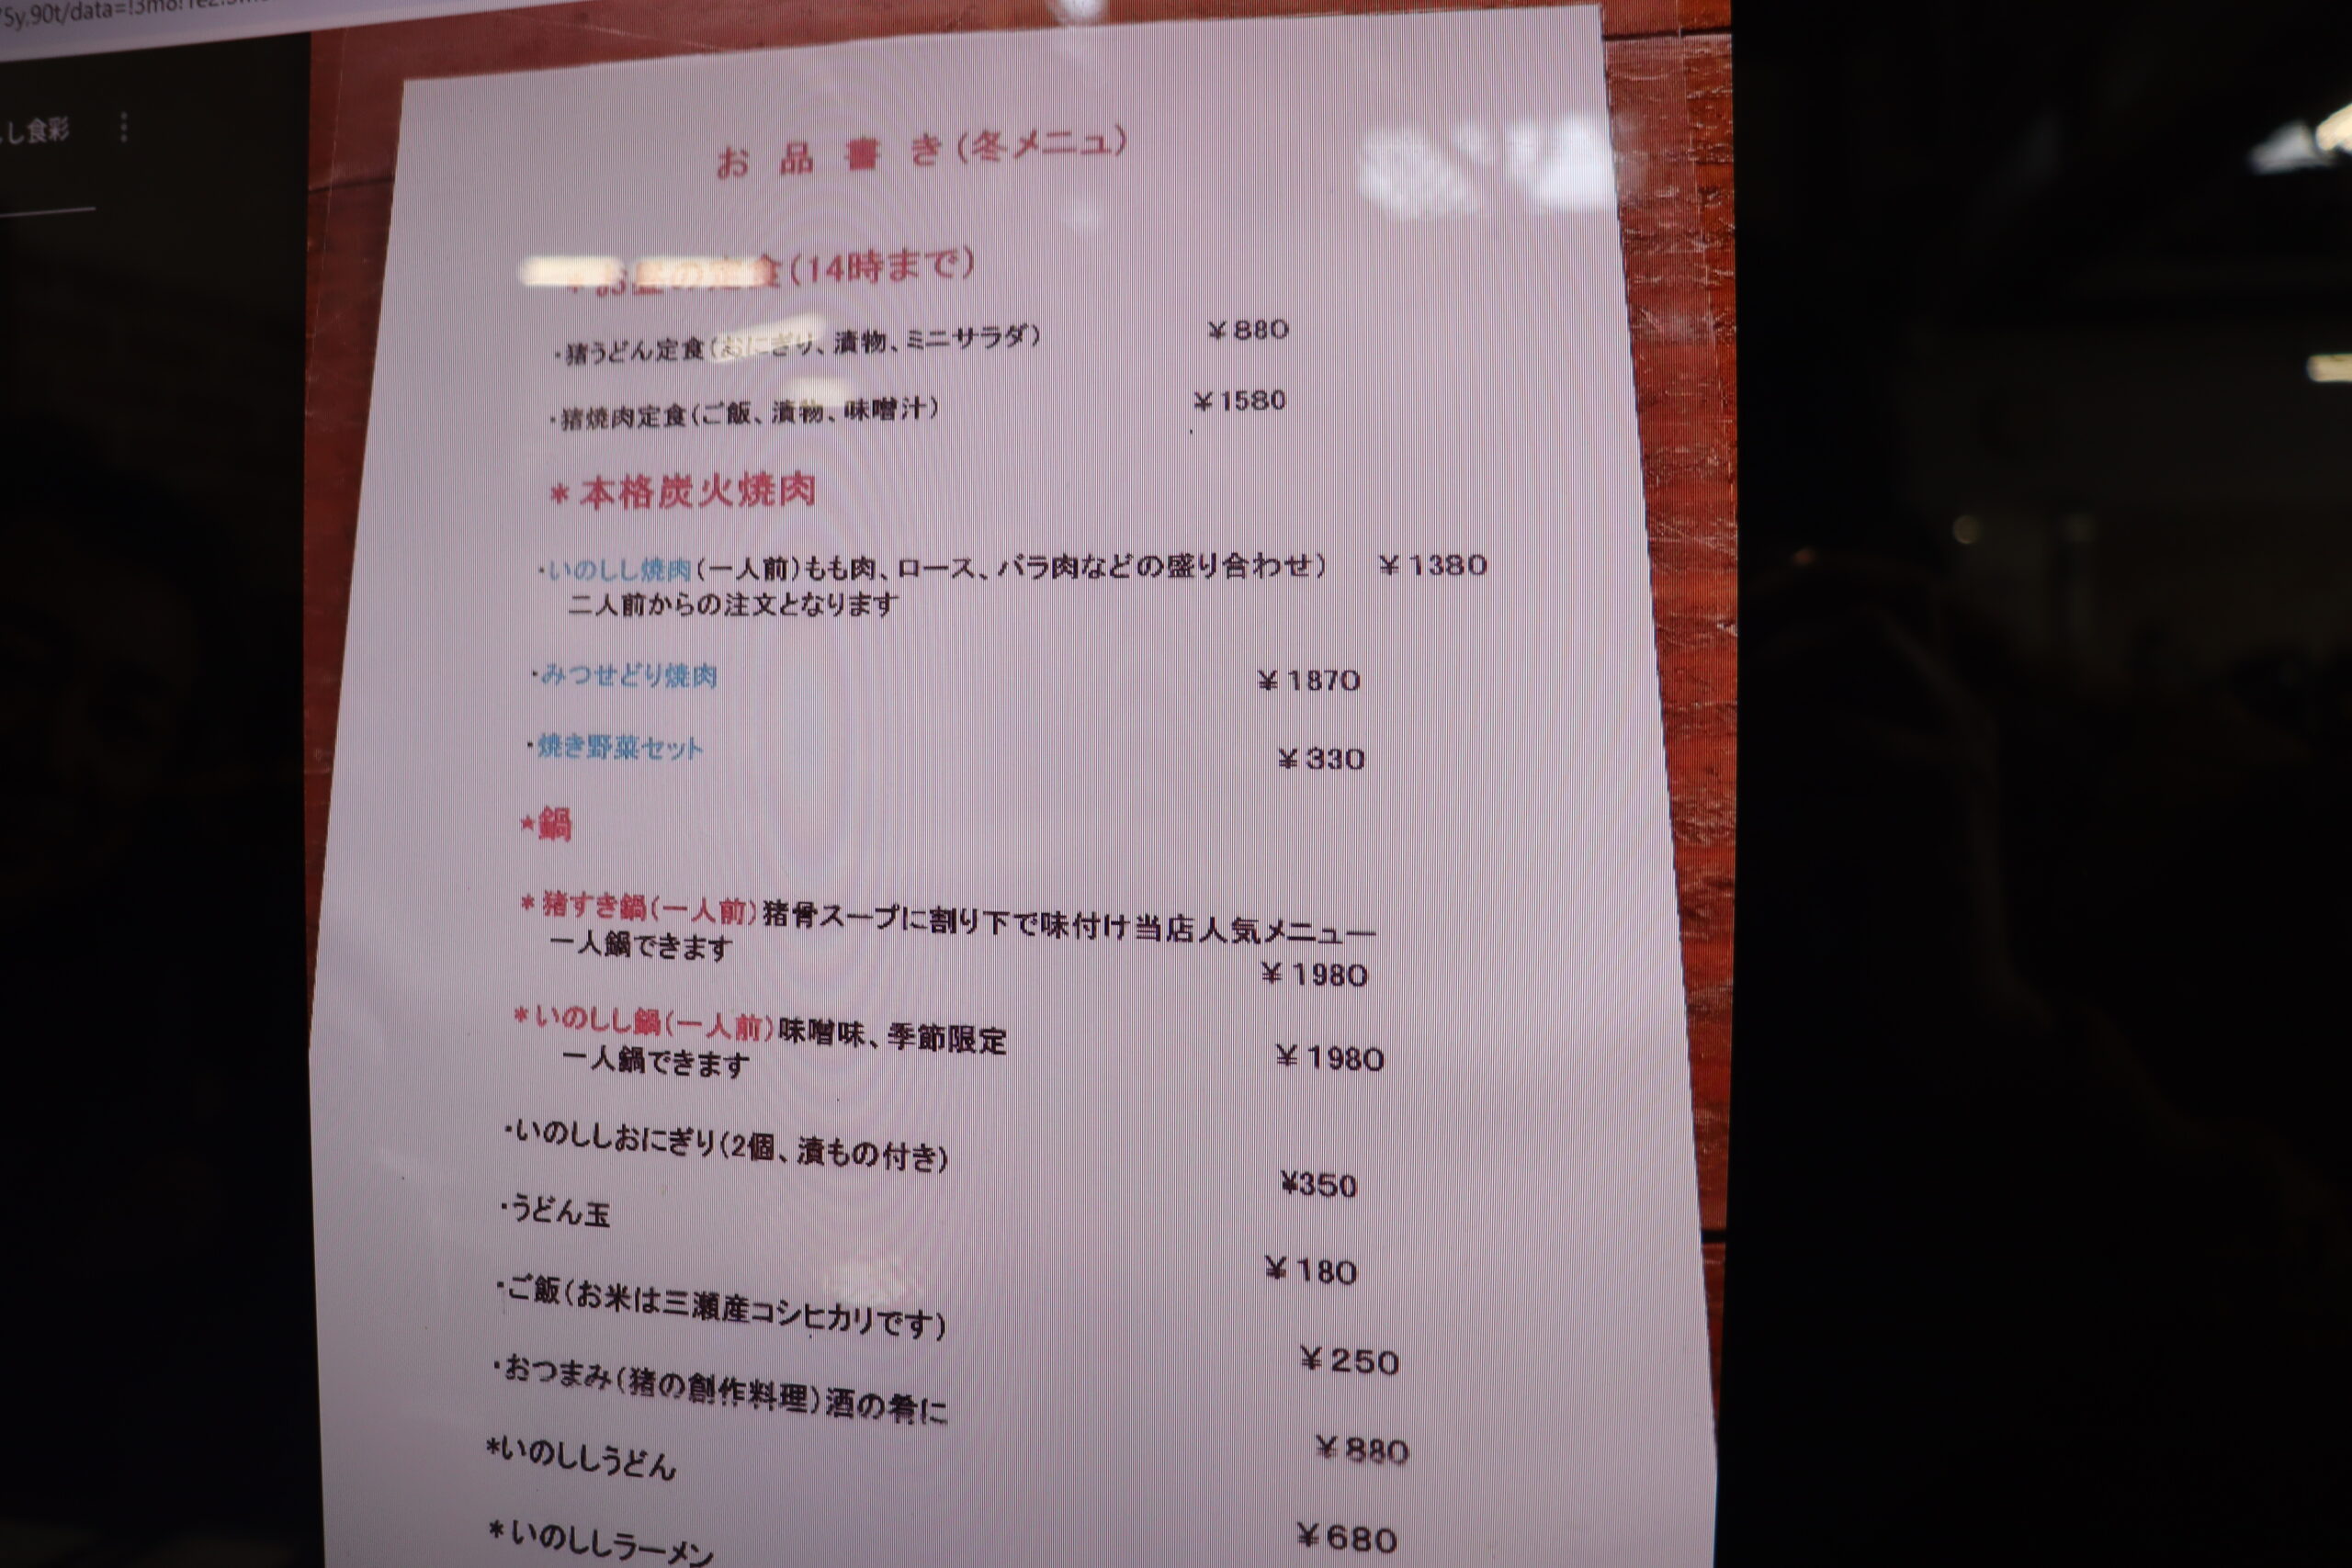 し食彩
お品書き(冬メニュ)
*お昼の定食(14時まで)
・猪うどん定食(おにぎり、漬物、ミニサラダ) ¥880
・猪焼肉定食(ご飯、漬物、味噌汁) ¥1580
*本格炭火焼肉
・いのしし焼肉(一人前)もも肉、ロース、バラ肉などの盛り合わせ) ¥1380
二人前からの注文となります
・みつせどり焼肉 ¥1870
・焼き野菜セット ¥330
*鍋
*猪すき鍋(一人前)猪骨スープに割り下で味付け当店人気メニュー
一人鍋できます ¥1980
*いのしし鍋(一人前)味噌味、季節限定 ¥1980
一人鍋できます
・いのししおにぎり(2個、漬もの付き) ¥350
・うどん玉 ¥180
・ご飯(お米は三瀬産コシヒカリです) ¥250
・おつまみ(猪の創作料理)酒の肴に ¥880
*いのししうどん ¥680
*いのししラーメン